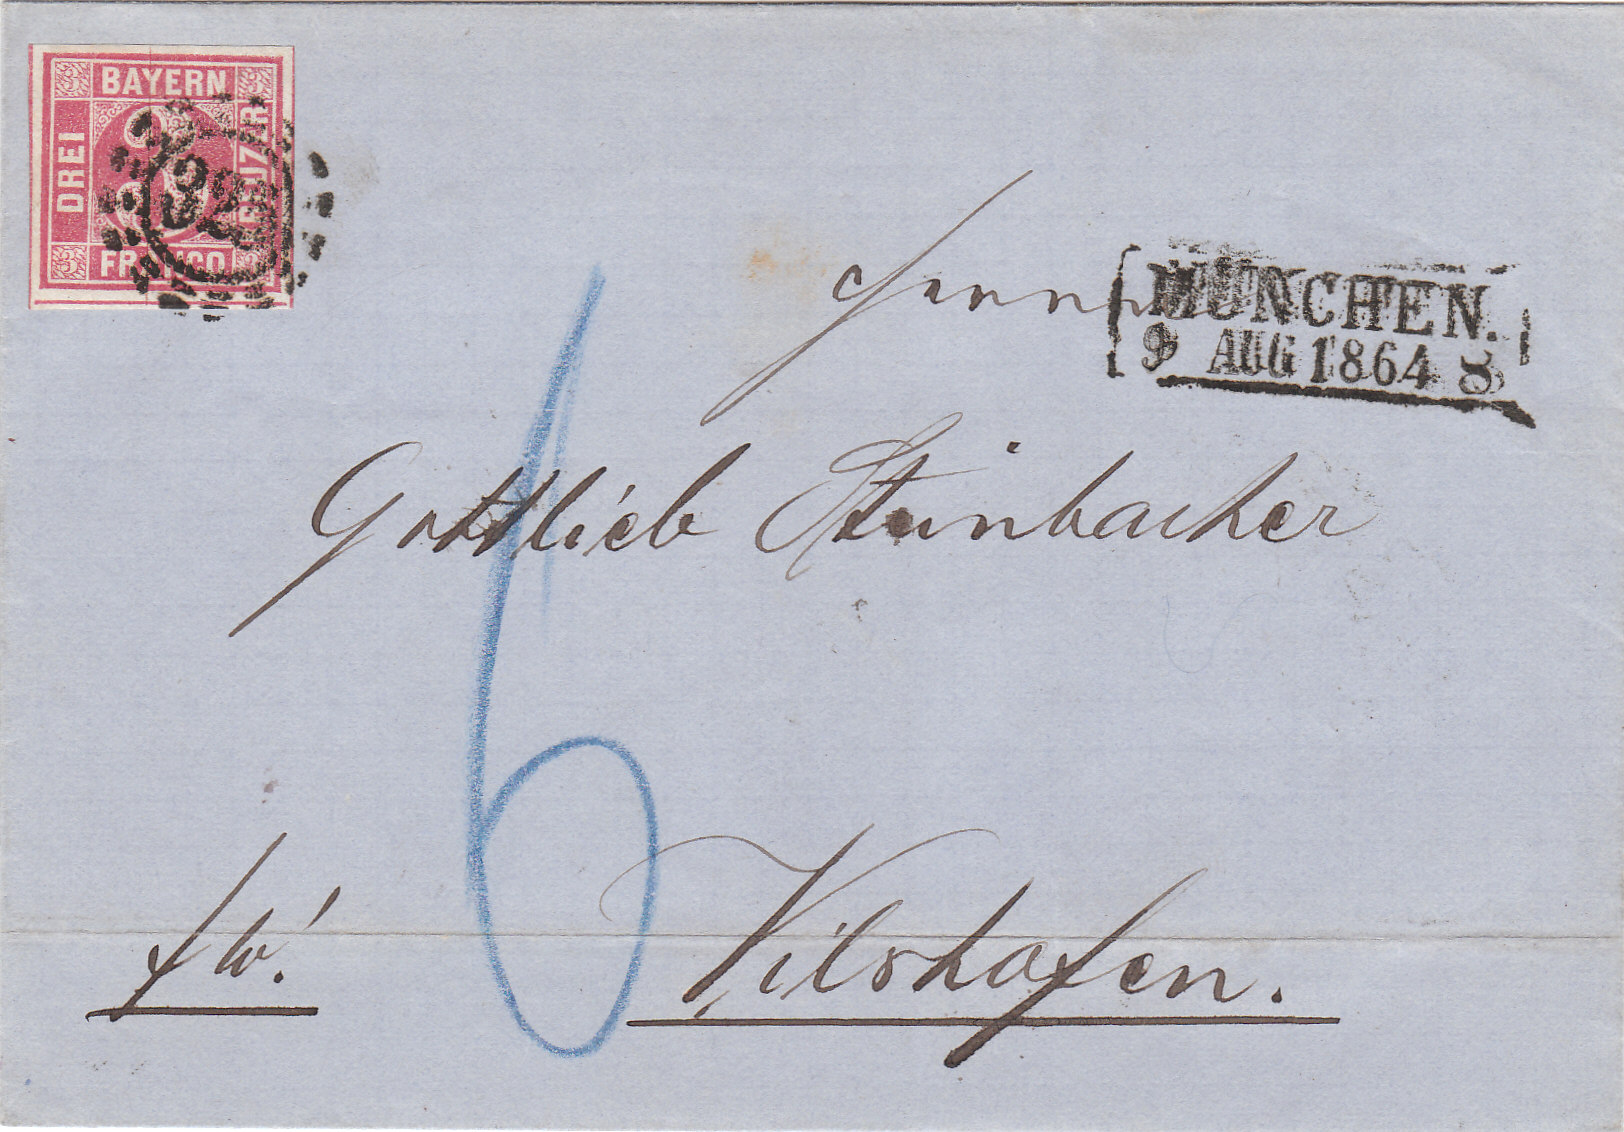 BAYERN
DREI
KREUZER
FRANCO
3 3 3 3
325
Herrn
MÜNCHEN.
9 AUG 1864 8
Gottlieb Steinbacher
6
fw!
Vilshofen.